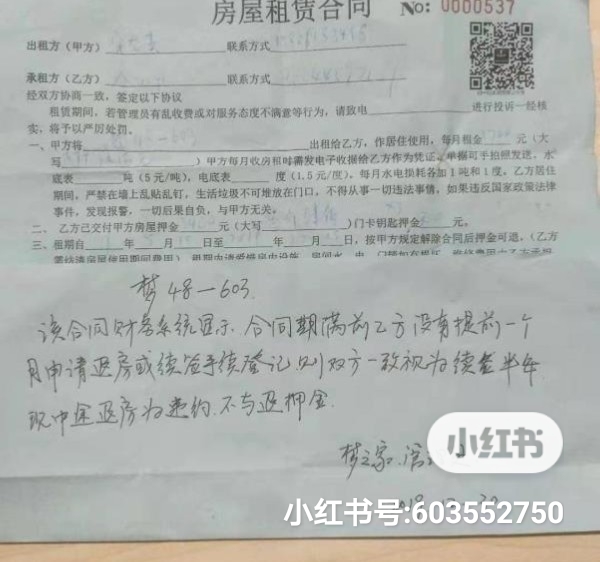 房屋租赁合同 No: 0000537
出租方（甲方） 联系方式
承租方（乙方） 联系方式
经双方协商一致，签定以下协议
租赁期间，若管理员有乱收费或对服务态度不满意等行为，请致电 进行投诉一经核
实，将予以严厉处罚。
一、甲方将 出租给乙方，作居住使用，每月租金 元（大
写 ）甲方每月收房租时需发电子收据给乙方作为凭证，单据可手拍照发送，水
底表 吨（5元/吨），电底表 度（1.5元/度），每月水电损耗各加1吨和1度，乙方居住
期间，严禁在墙上乱贴乱钉，生活垃圾不可堆放在门口，不得从事一切违法事情，如果违反国家政策法律
事件，发现报警，一切后果自负，与甲方无关。
二、乙方已交付甲方房屋押金 元（大写 ）门卡钥匙押金 元。
三、租期自 年 月 日至 年 月 日，按甲方规定解除合同后押金可退，（乙方
梦48-603.
该合同财务系统显示，合同期满前乙方没有提前一个
月申请退房或续签手续登记则双方一致视为续签半年
现中途退房为违约.不与退押金.
梦之家
小红书
小红书号:603552750